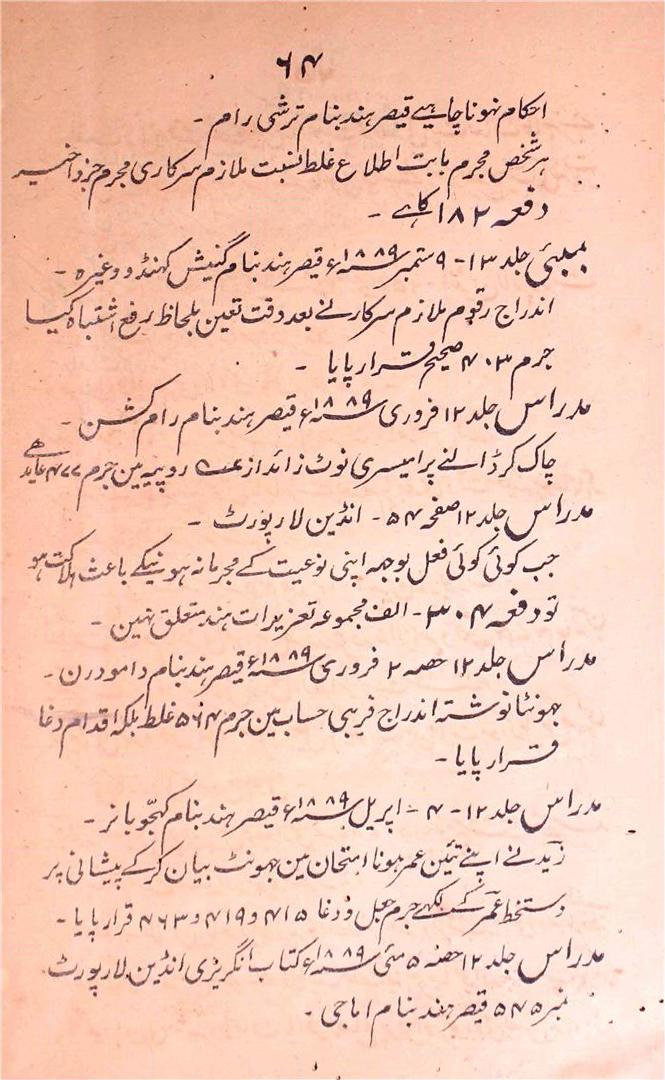 ۶۴
احکام نہونا چاہیے قیصر ہند بنام ترشی رام ۔
ہر شخص مجرم بابت اطلاع غلط نسبت ملازم سرکاری مجرم جزو اخیر
دفعہ ۱۸۲ کا ہے ۔
بمبئی جلد ۱۳ - ۹ ستمبر ۱۸۸۹ء قیصر ہند بنام گنیش کھنڈو وغیرہ ۔
اندراج رقوم ملازم سرکار نے بعد وقت تعین بلحاظ رفع اشتباہ کیا
جرم ۴۰۳ صحیح قرار پایا ۔
مدراس جلد ۱۲ فروری ۱۸۸۹ء قیصر ہند بنام رام کشن ۔
چاک کر ڈالنے پرامیسری نوٹ زائد از روپیہ مین جرم ۴۷۷ عاید ہے
مدراس جلد ۱۲ صفحہ ۵۴ - انڈین لا رپورٹ ۔
جب کوئی کوئی فعل بوجہہ اپنی نوعیت کے مجرمانہ ہونیکے باعث ہلاکت ہو
تو دفعہ ۳۰۴ - الف مجموعہ تعزیرات ہند متعلق نہین ۔
مدراس جلد ۱۲ حصہ ۲ فروری ۱۸۸۹ء قیصر ہند بنام دامودرن ۔
جھونٹا نوشتہ اندراج فریبی حساب مین جرم ۵۶۴ غلط بلکہ اقدام دغا
قرار پایا ۔
مدراس جلد ۱۲ - ۴ - اپریل ۱۸۸۹ء قیصر ہند بنام کہچو بانر ۔
زید نے اپنے تئین عمر ہونا امتحان مین جھونٹ بیان کر کے پیشانی پر
دستخط عمر کے لکھے جرم جعل و دغا ۴۱۵ و ۴۱۹ و ۴۶۳ قرار پایا ۔
مدراس جلد ۱۲ حصہ ۵ مئی ۱۸۸۹ء کتاب انگریزی انڈین لا رپورٹ
نمبر ۵۴۵ قیصر ہند بنام اباجی ۔